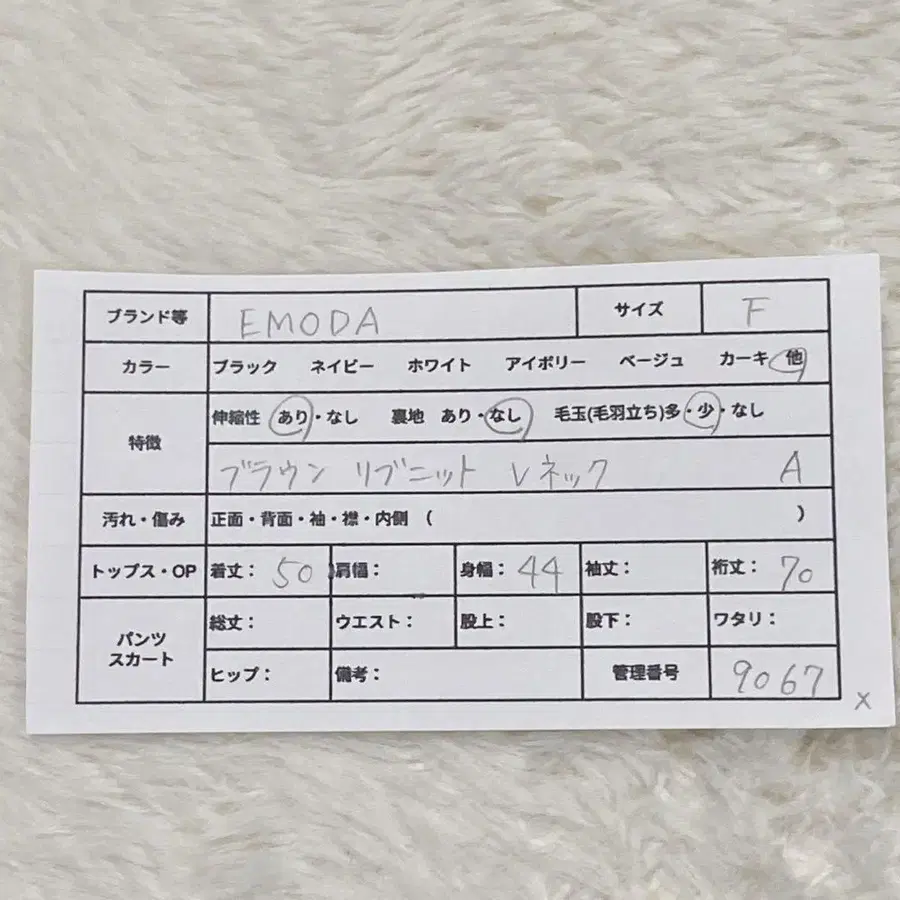 ブランド等 EMODA サイズ F
カラー ブラック ネイビー ホワイト アイボリー ベージュ カーキ 他
特徴 伸縮性 あり・なし 裏地 あり・なし 毛玉(毛羽立ち)多・少・なし
ブラウン リブニット Vネック A
汚れ・傷み 正面・背面・袖・襟・内側 ( )
トップス・OP 着丈: 50 肩幅: 身幅: 44 袖丈: 裄丈: 70
パンツ スカート 総丈: ウエスト: 股上: 股下: ワタリ:
ヒップ: 備考: 管理番号 9067
x